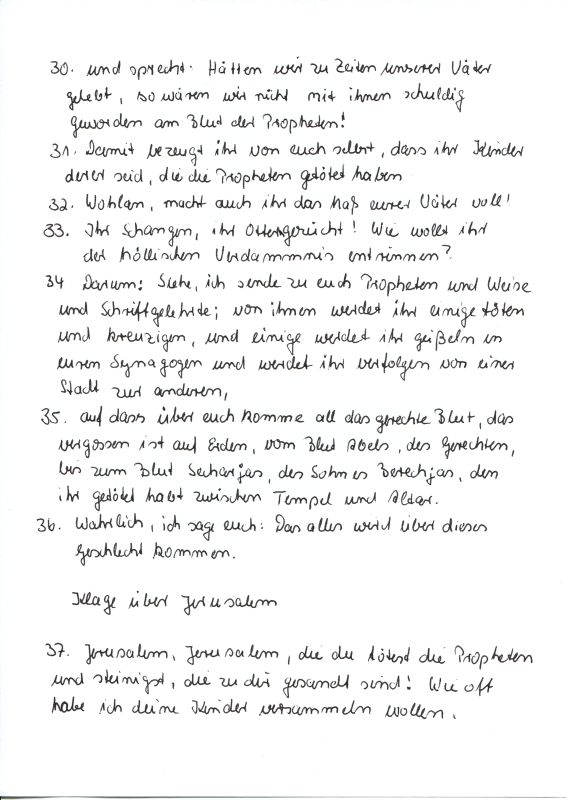 30. und sprecht: Hätten wir zu Zeiten unserer Väter
gelebt, so wären wir nicht mit ihnen schuldig
geworden am Blut der Propheten!
31. Damit bezeugt ihr von euch selbst, dass ihr Kinder
derer seid, die die Propheten getötet haben
32. Wohlan, macht auch ihr das Maß eurer Väter voll!
33. Ihr Schangen, ihr Otterngezücht! Wie wollt ihr
der höllischen Verdammnis entrinnen?
34 Darum: Siehe, ich sende zu euch Propheten und Weise
und Schriftgelehrte; von ihnen werdet ihr einige töten
und kreuzigen, und einige werdet ihr geißeln in
euren Synagogen und werdet ihr verfolgen von einer
Stadt zur anderen,
35. auf dass über euch komme all das gerechte Blut, das
vergossen ist auf Erden, vom Blut Abels, des Gerechten,
bis zum Blut Secharjas, des Sohnes Berechjas, den
ihr getötet habt zwischen Tempel und Altar.
36. Wahrlich, ich sage euch: Das alles wird über dieses
Geschlecht kommen.
Klage über Jerusalem
37. Jerusalem, Jerusalem, die du tötest die Propheten
und steinigst, die zu dir gesandt sind! Wie oft
habe ich deine Kinder versammeln wollen,